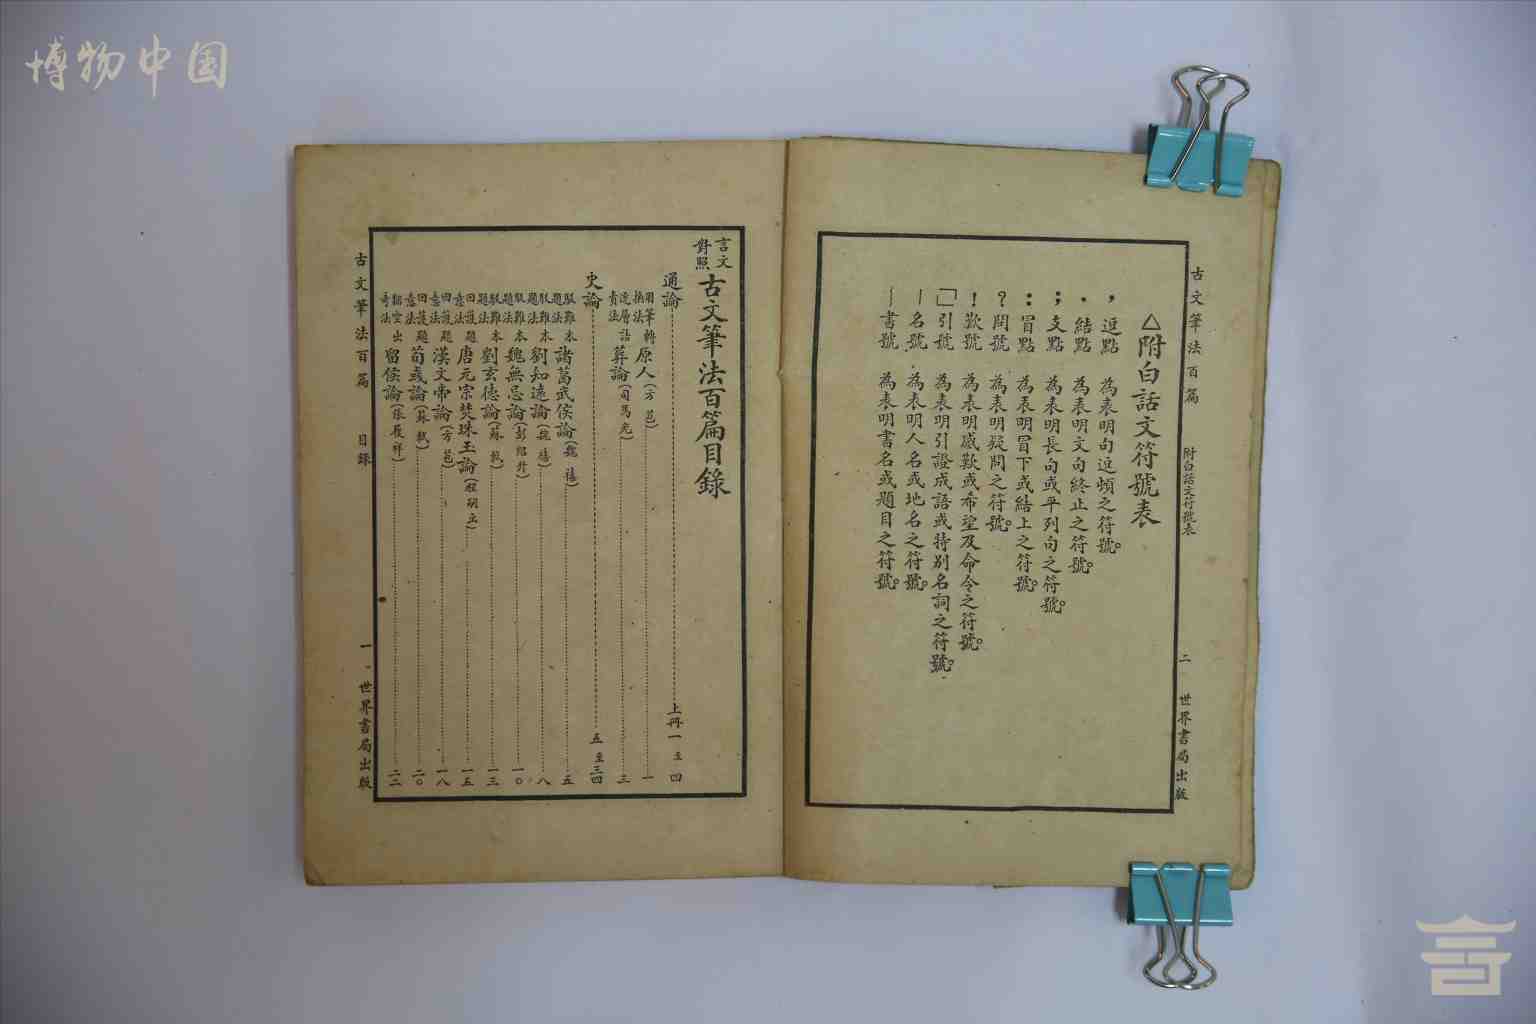 博物中国
古文筆法百篇 附白話文符號表 二 世界書局出版
△附白話文符號表
，逗點 為表明句逗頓之符號。
．結點 為表明文句終止之符號。
；支點 為表明長句或平列句之符號。
：冒點 為表明冒下或結上之符號。
？問號 為表明疑問之符號。
！歎號 為表明感歎或希望及命令之符號。
「」引號 為表明引證成語或特別名詞之符號。
—名號 為表明人名或地名之符號。
﹏書號 為表明書名或題目之符號。
言文對照 古文筆法百篇目錄
通論 上冊一至四
用筆轉換法 原人（方苞） 一
逐層詰責法 葬論（司馬光） 三
史論 五至三四
駁難本題法 諸葛武侯論（魏禧） 五
駁難本題法 劉知遠論（魏禧） 八
駁難本題法 魏無忌論（彭紹升） 一〇
駁難本題法 劉玄德論（蘇軾） 一三
回護題意法 唐元宗焚珠玉論 一五
回護題意法 漢文帝論（方苞） 一八
回護題意法 荀彧論（蘇軾） 二〇
翻空出奇法 留侯論（張履祥） 二二
古文筆法百篇 目錄 一 世界書局出版